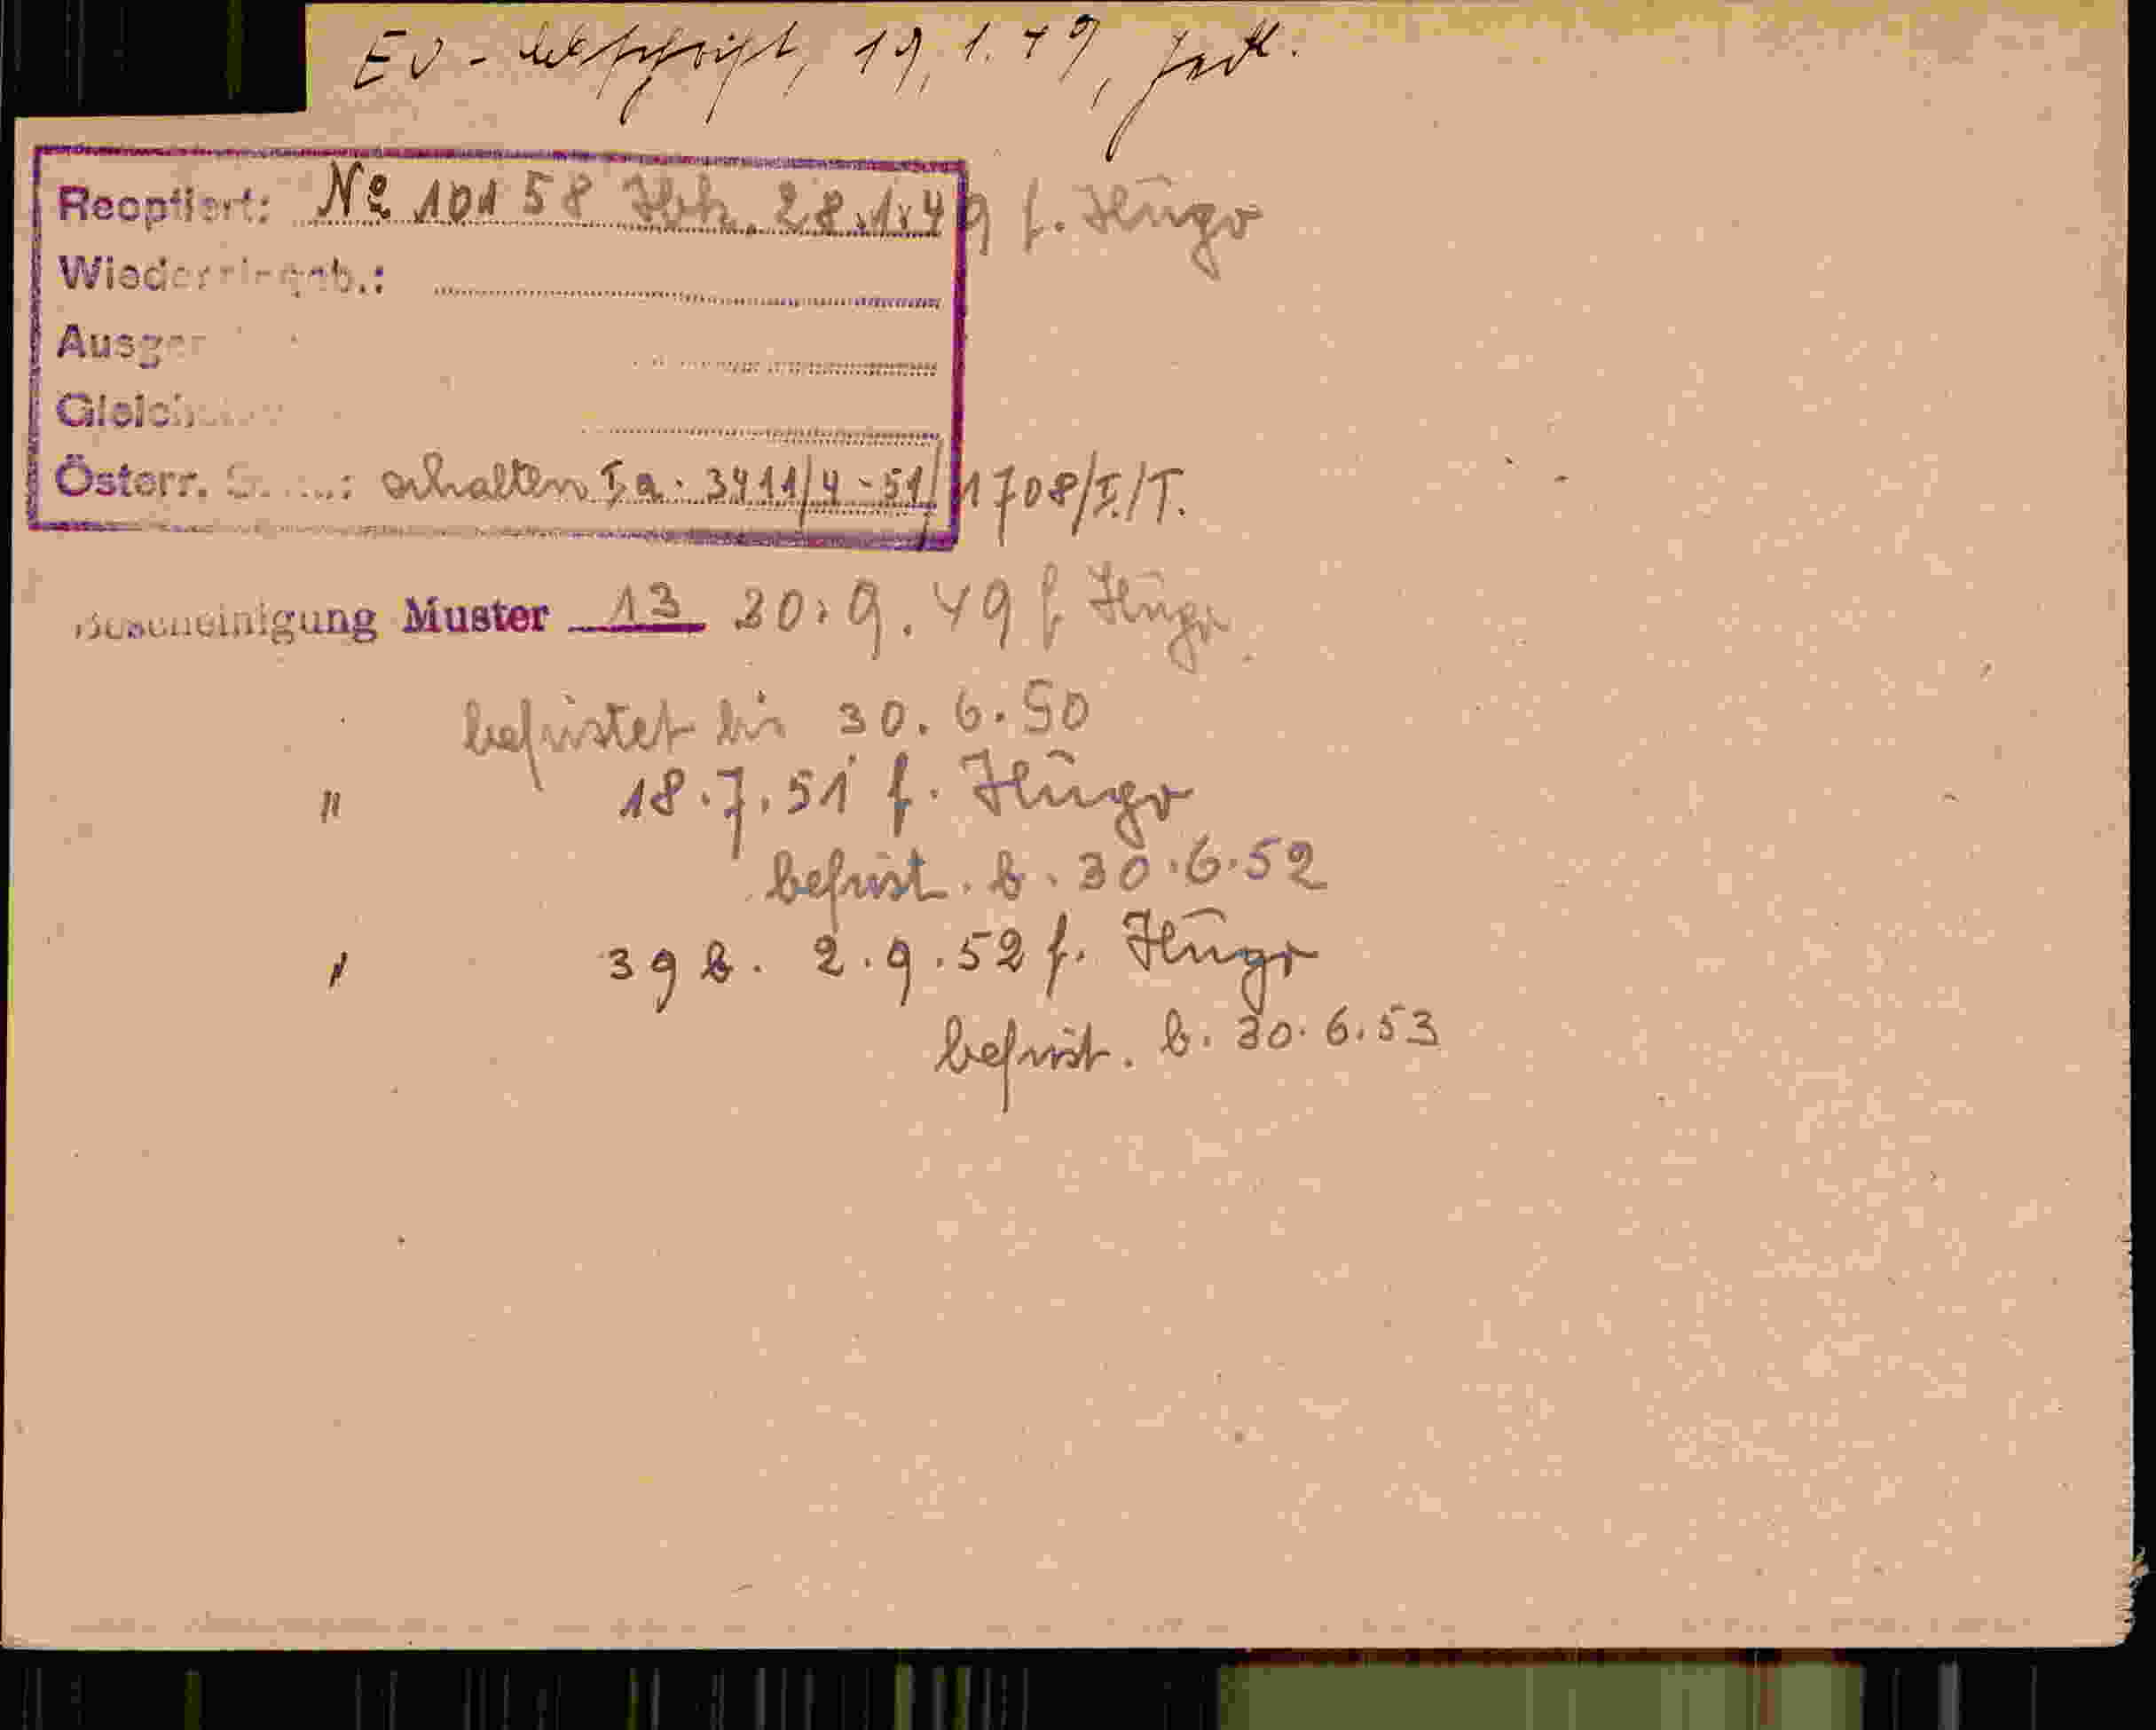 EV-Abschrift, 19.1.49,
Reoptiert: № 10158 Hbk. 28.1.49 f. Hugo
Wiedereingeb.:
Ausger
Gleich
Österr. S....: erhalten I, a. 3411/4-51/1708/I./T.
Bescheinigung Muster 13 20.9.49 f Hugo
befristet bis 30.6.50
" 18.7.51 f. Hugo
befrist. b. 30.6.52
" 39 b. 2.9.52 f. Hugo
befrist. b. 30.6.53